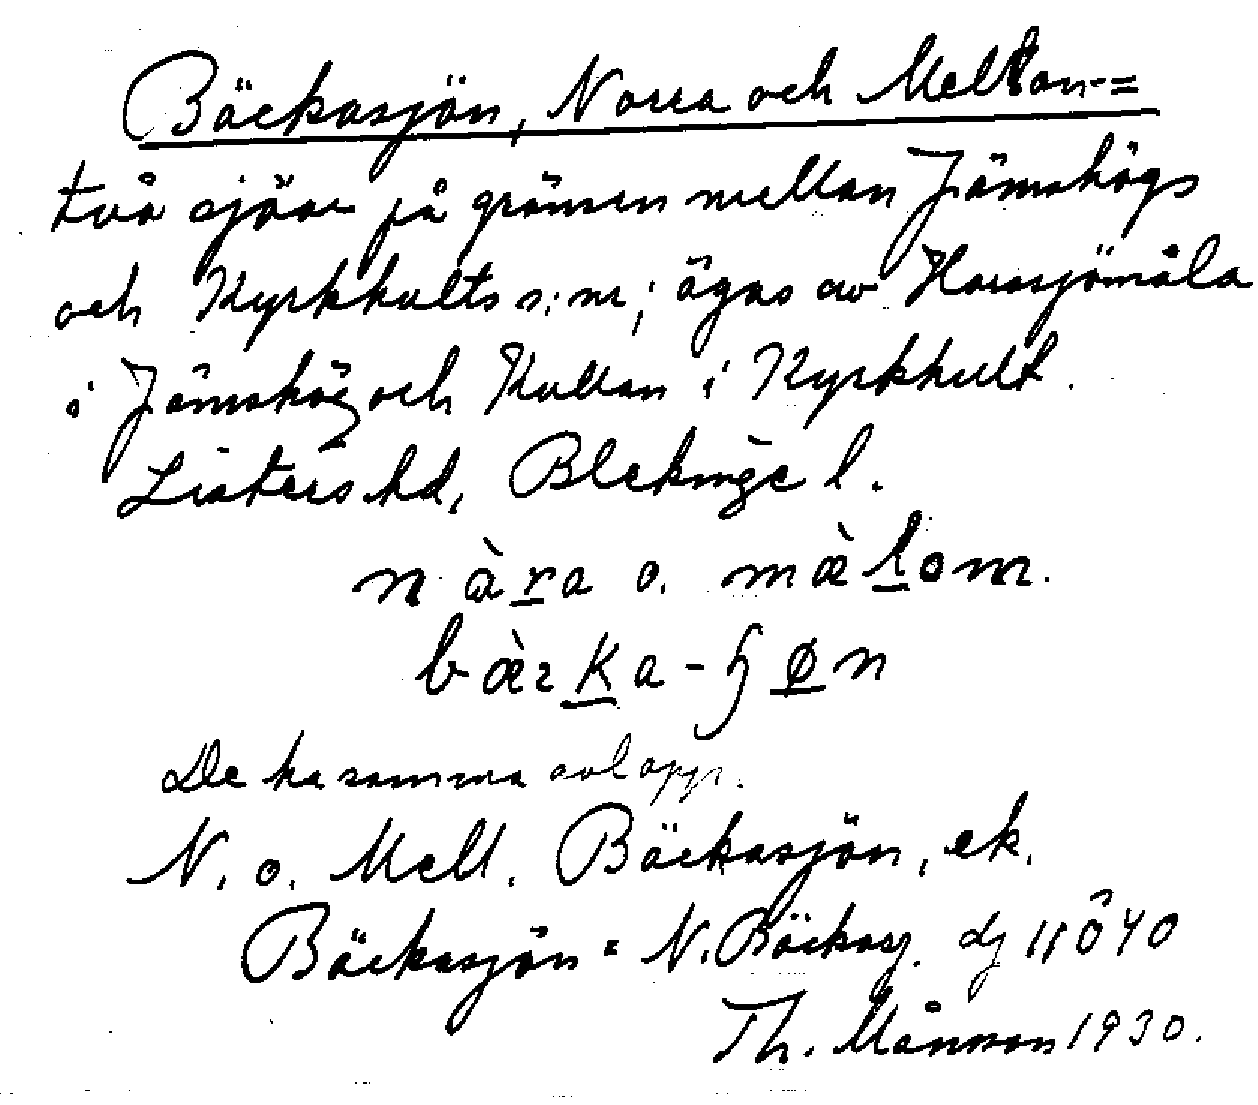 Bäckasjön, Norra och Mellan-=
två sjöar på gränsen mellan Jämshögs
och Kyrkhults s:nr; ägas av Harasjömåla
i Jämshög och Kullan i Kyrkhult.
Listers hd, Blekinge l.
nàra o. mæ̀lom.
bæ̀rka-ɧøn
De ha samma avlopp.
N. o. Mell. Bäckasjön, ek.
Bäckasjön = N. Bäckasj. dj 11 Ö 40
Th. Månsson 1930.